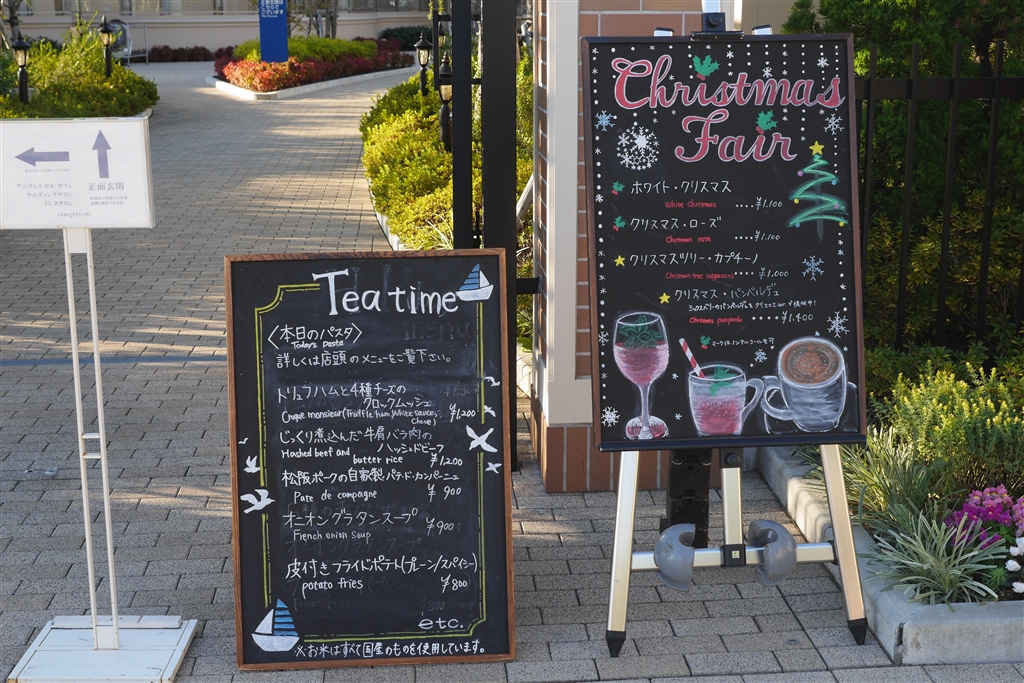 アニヴェルセル カフェ
ウエディングサロン
ドレスサロン
正面玄関
Tea time
〈本日のパスタ〉
Today's Pasta
詳しくは店頭のメニューをご覧下さい。
トリュフハムと4種チーズの
クロックムッシュ
Croque monsieur(Truffle ham, White sauce, Cheese) ¥1,200
じっくり煮込んだ牛肩バラ肉の
ハッシュドビーフ
Hashed beef and butter rice ¥1,200
松阪ポークの自家製パテ・ド・カンパーニュ
Pate de campagne ¥900
オニオングラタンスープ
French onion soup ¥900
皮付きフライドポテト(プレーン/スパイシー)
potato fries ¥800
etc.
※お米はすべて国産のものを使用しています。
Christmas
Fair
ホワイト・クリスマス
White Christmas ・・・・¥1,100
クリスマス・ローズ
Christmas rose ・・・・¥1,100
クリスマスツリー・カプチーノ
Christmas tree cappuccino ・・・・¥1,000
クリスマス・パンペルデュ
ミックスベリーのパンペルデュをクリスマスver.で提供中!
・・・・¥1,400
マークはノンアルコールも可